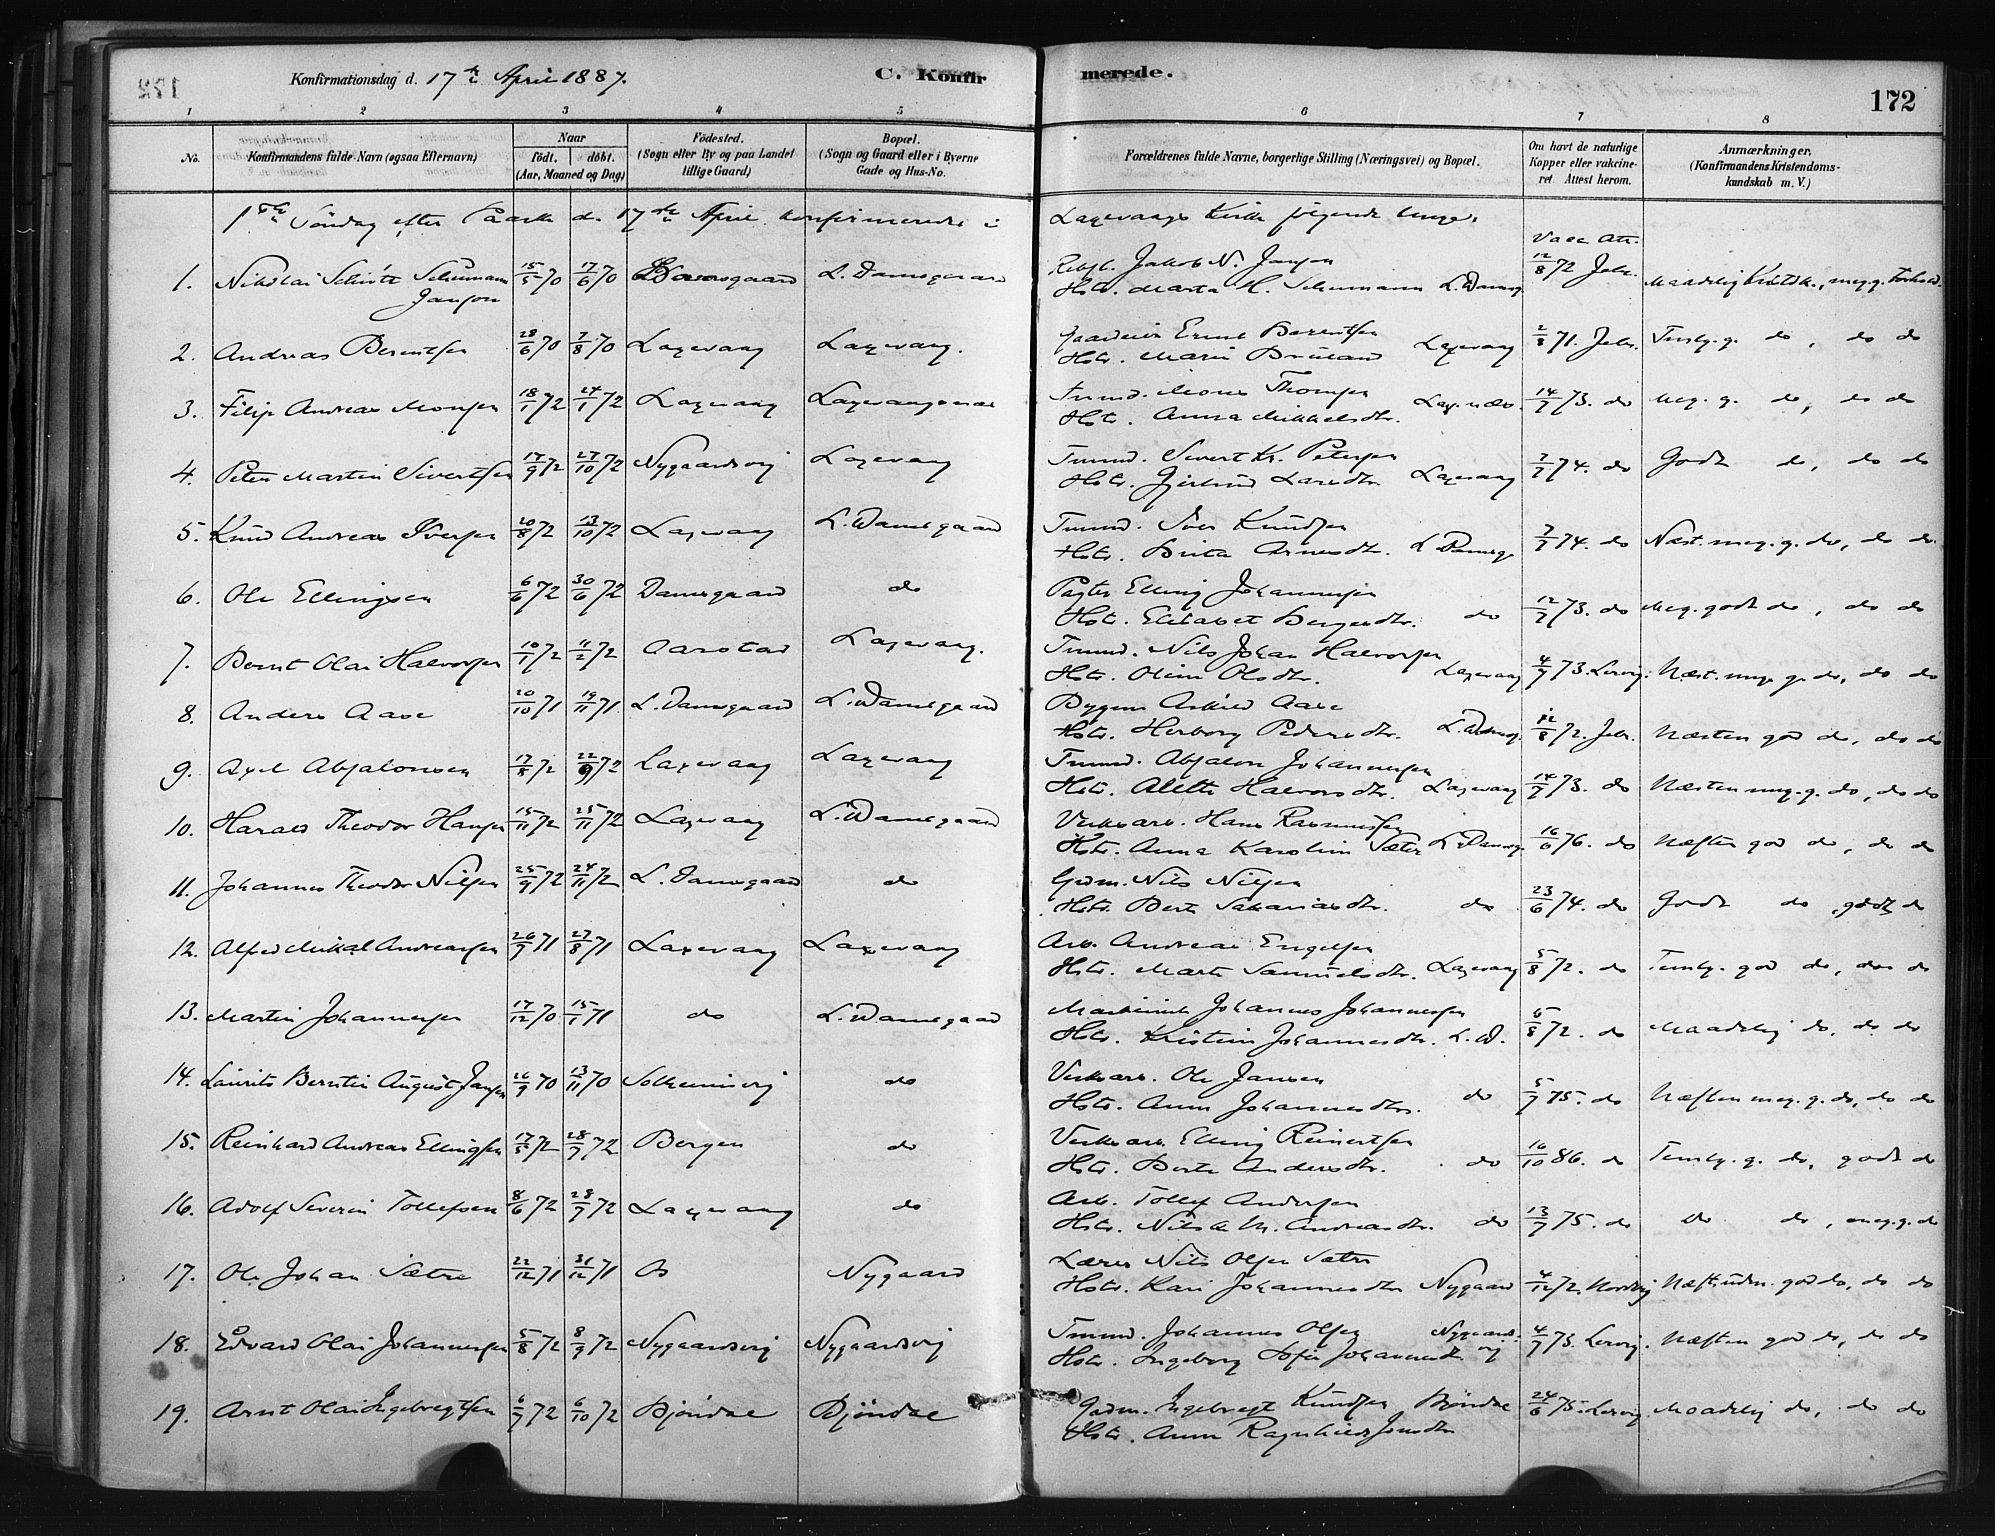 Konfirmationsdag d. 17de April 1887. C. Konfirmerede. 172
1 2 3 4 5 6 7 8
No. Konfirmandens fulde Navn (ogsaa Efternavn) Naar födt. döbt. (Aar, Maaned og Dag) Födested. (Sogn eller By og paa Landet tillige Gaard) Bopæl. (Sogn og Gaard eller i Byerne Gade og Hus-No. Forældrenes fulde Navne, borgerlige Stilling (Næringsvei) og Bopæl. Om havt de naturlige Kopper eller vakcineret Attest herom. Anmærkninger, (Konfirmandens Kristendomskundskab m. V.)
1ste Söndag efter Paaske d. 17de April konfirmerede i Laxevaags Kirke følgende Unge:
Vacc. Att.
1. Nikolai Schirtz Schumann Jansen 15/5 70 17/6 70 Damsgaard L. Damsgaard Jakob N. Jansen
Hstr. Marta H. Schumann L. Damsg. 12/8 72 Jebs. Maadelig Kristdk., meg. g. Forhold.
2. Andreas Berentsen 28/6 70 7/8 70 Laxevaag Laxevaag. Ernst Berentsen
Hstr. Marie Laxevaag 2/8 71. Jebs. Temlig g. do, do do
3. Filip Andreas Monsen 18/1 72 24/1 72 Laxevaag Tmmd. Mons Thomsen
Hstr. Anna Mikkelsdtr. 14/7 73. do Meg. g. do, do do
4. Peter Martin Sivertsen 17/9 72 27/10 72 Nygaardsvig Laxevaag Tmmd. Sivert K. Petersen
Hstr. Gjertrud Larsdtr Laxevaag 7/7 74. do Godt do, do do
5. Knud Andreas Iversen 20/8 72 13/10 72 Laxevaag L. Damsgaard Tmmd. Iver Knudsen
Hstr. Brita Arnesdtr. L Damsg. 7/7 74. do Næst. meg. g. do, do do
6. Ole Ellingsen 6/6 72 30/6 72 Damsgaard do Elling Johannesen
Hstr. Elisabet Bergesdtr. do 12/7 73. do Meg. godt do, do do
7. Bernt Olai Halvorsen 10/1 72 11/2 72 Aarstad Laxevaag. Tmmd. Nils Johan Halvorsen
Hstr. Oline Olsdtr. Laxevaag 4/7 73. Lervig. Næst. meg. g. do, do do
8. Anders Aase 20/10 71 19/11 71 L. Damsgaard L. Damsgaard Bygm. Askild Aase
Hstr. Herborg Pedersdtr. L. Damsg. 12/8 72. Jebs. Næsten god do, do do
9. Axel Absalonsen 17/8 72 22/9 72 Laxevaag Laxevaag Tmmd. Absalon Johannesen
Hstr. Alette Halvorsdtr. Laxevaag 14/7 73. do Næsten meg. g. do, do do
10. Harald Theodor Hansen 15/11 72 25/11 72 Laxevaag L. Damsgaard Verksarb. Hans Rasmussen
Hstr. Anna Karoline Sæter L. Damsg. 16/6 76. do Næsten god do, do do
11. Johannes Theodor Nilsen 25/9 72 24/11 72 L. Damsgaard do Grdm. Nils Nilsen
Hstr. Berte Sakariasdtr. do 23/6 74. do Godt do, godt do
12. Alfred Mikal Andreassen 26/7 71 27/8 71 Laxevaag Laxevaag Arb. Andreas Engelsen
Hstr. Marta Samuelsdtr. Laxevaag 5/8 72. do Temlig. god do, do do
13. Martin Johannesen 17/12 70 15/1 71 do L. Damsgaard Maskinist Johannes Johannesen
Hstr. Kristine Johannesdtr. L. D. 5/8 72. do Maadelig do, do do
14. Laurits Berntin August Jansen 26/9 70 13/11 70 Solheimsvig do Verksarb. Ole Jansen
Hstr. Anne Johannesdtr. do 5/7 75. do Næsten meg. g. do, do do
15. Reinhard Andreas Ellingsen 17/5 72 28/7 72 Bergen do Verksarb. Elling Reinertsen
Hstr. Berte Andersdtr. do 16/10 86. do Temlig. g. do, godt do
16. Adolf Severin Tollefsen 8/6 72 28/7 72 Laxevaag do Arb. Tollef Andersen
Hstr. M. Andreasdtr. do 13/7 75. do do do, meg. g. do
17. Ole Johan Sætre 22/12 71 31/12 71 Os Nygaard Lærer Nils Olsen Sætre
Hstr. Kari Johannesdtr Nygaard 4/12 72 god do, do do
18. Edvard Olai Johannesen 5/8 72 8/9 72 Nygaardsvig Nygaardsvig Tmmd. Johannes Olsen Nygaards-
Hstr. Ingeborg Sofie Johannesdtr. vig 4/7 73. Lervig. Næsten god do, do do
19. Arnt Olai Ingebregtsen 6/7 72 6/10 72 Bjöndal Bjöndal Grdm. Ingebregt Knudsen Bjöndal 24/6 75. Lervig. Maadelig do, do do
Hstr. Anne Ragnhild Jonsdtr